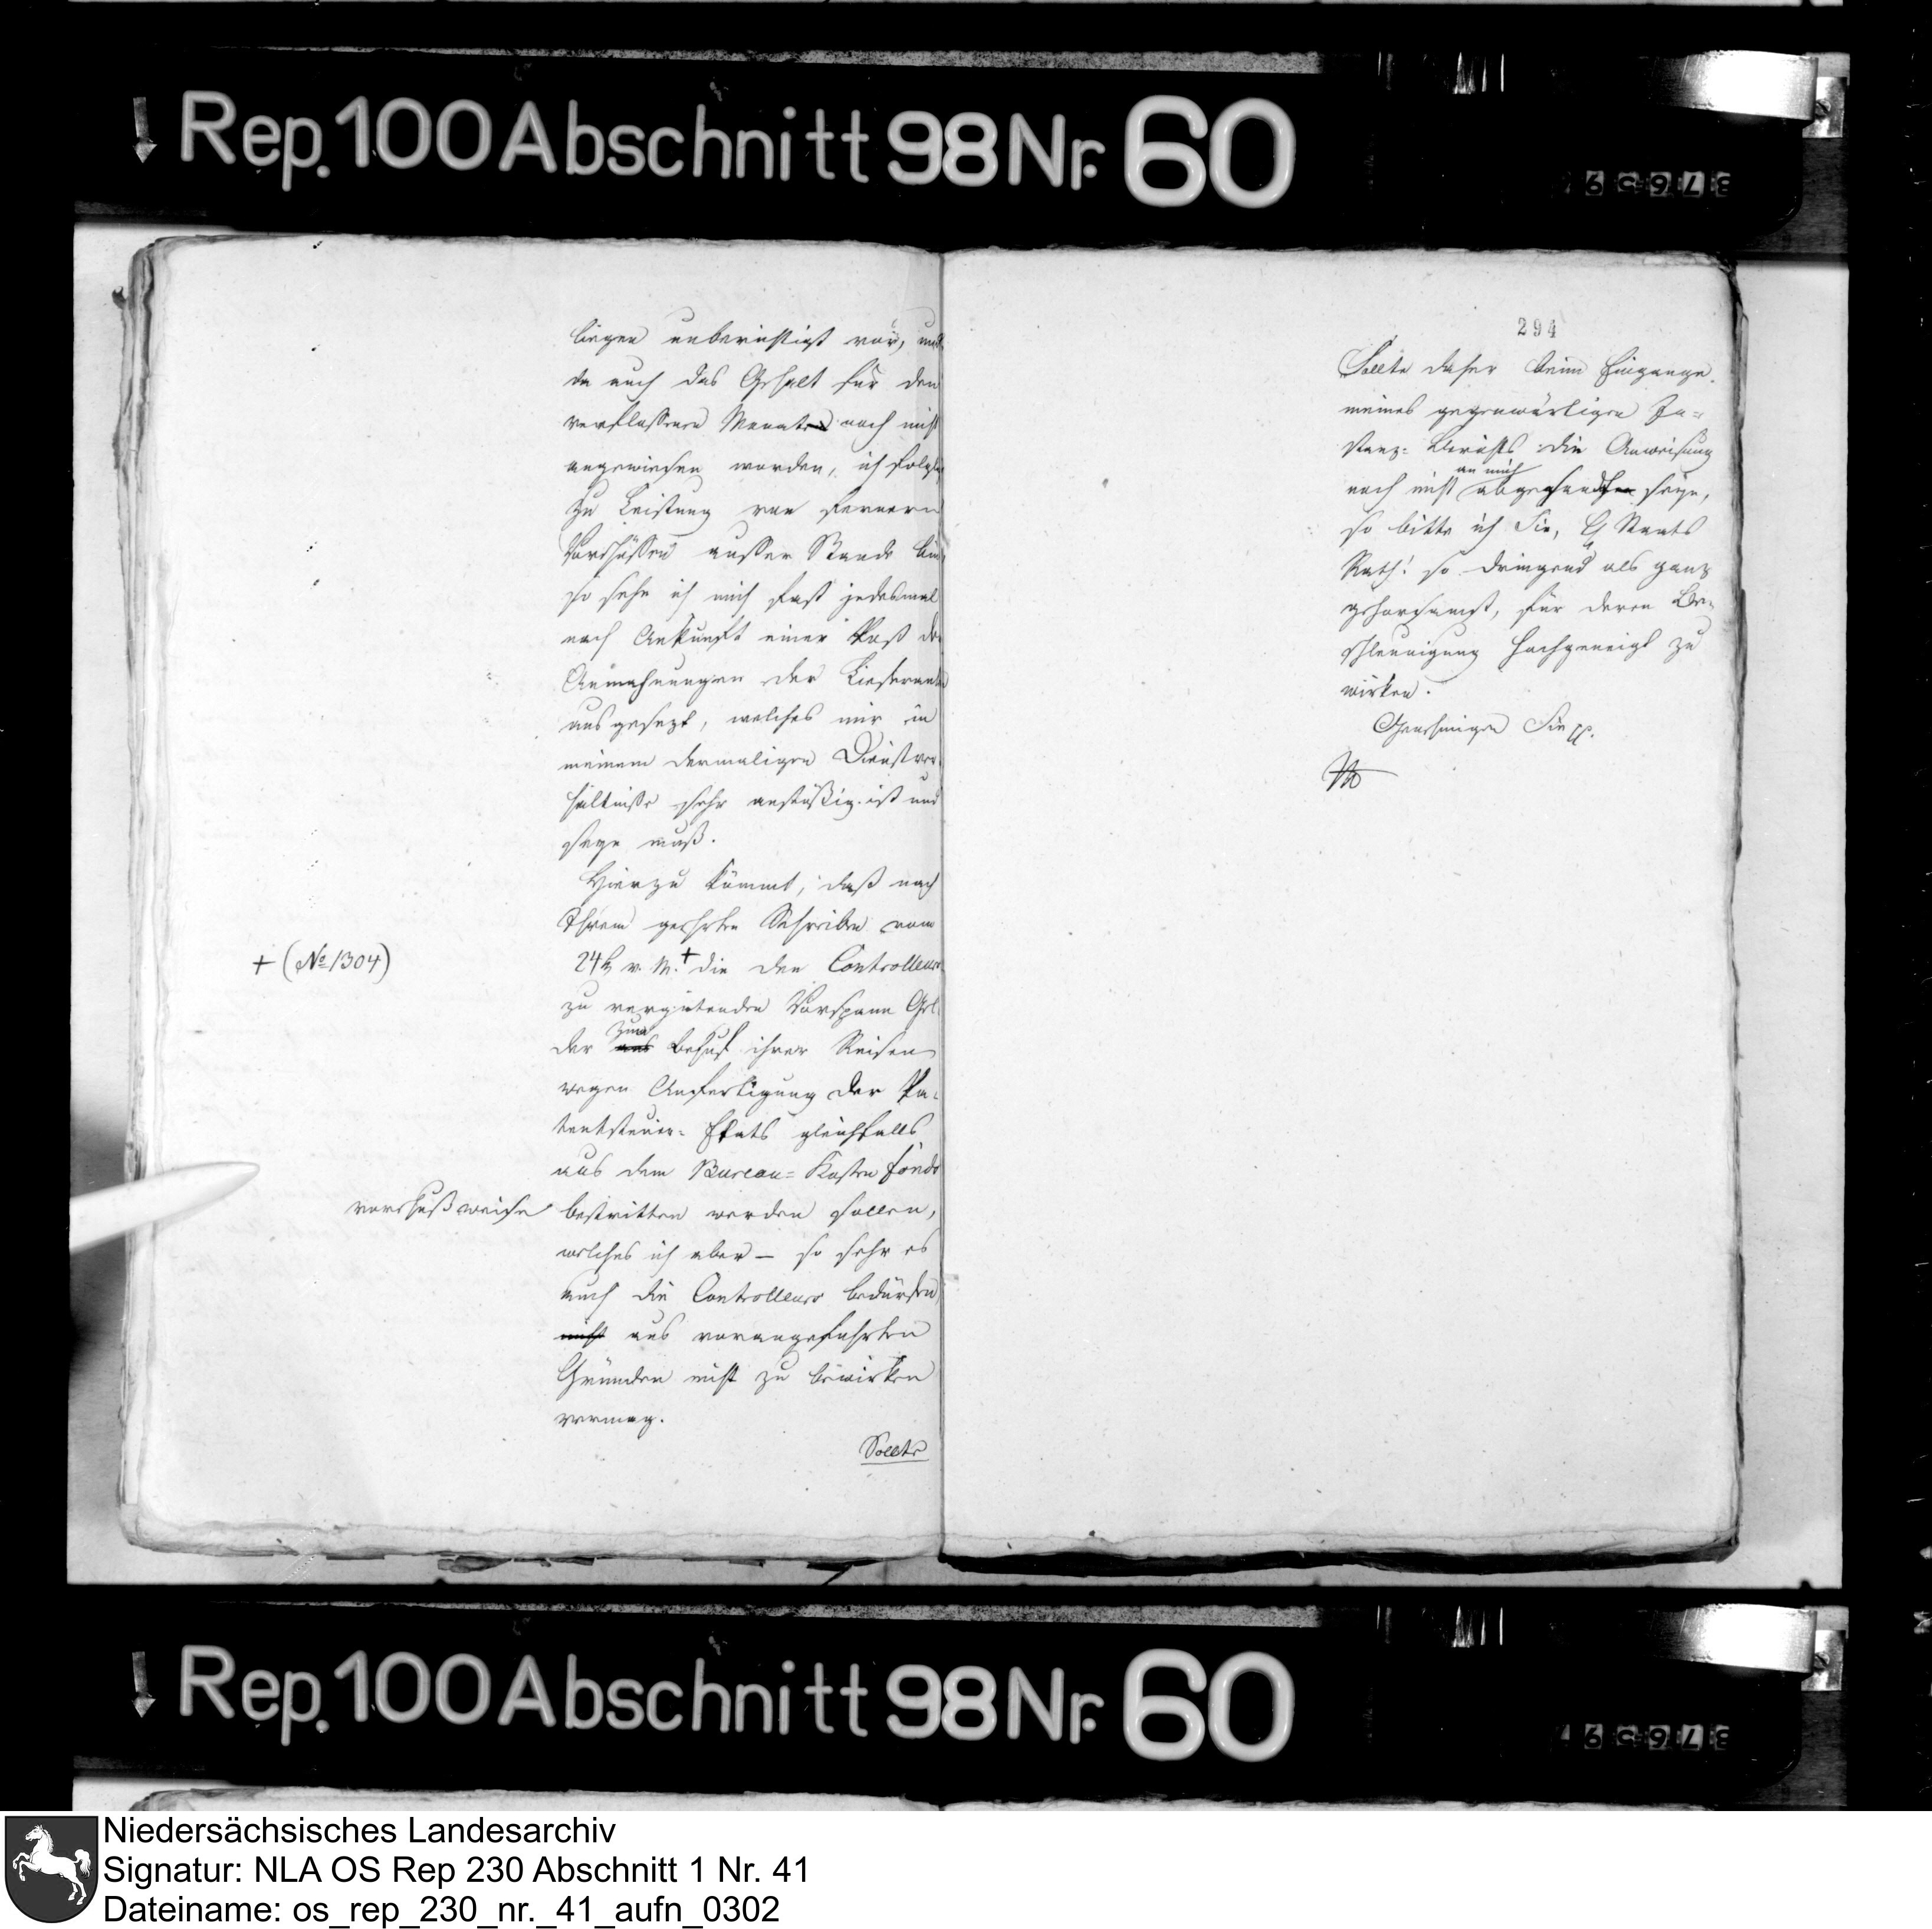 Rep. 100 Abschnitt 98 Nr. 60
liegen unberichtigt vor, und
da auch das Gehalt für den
verflossenen Monat noch nicht
angewiesen worden, ich folglich
zu Leistung von fernern
Vorschüssen ausser Stande bin,
so sehe ich mich fast jedesmal
nach Ankunft einer Post den
Anmahnungen der Lieferanten
ausgesezt, welches mir in
meinem dermaligen Dienstver-
hältnisse sehr anstößig ist und
seyn muß.
Hierzu kömmt, daß nach
Ihrem geehrten Schreiben vom
+ (No 1304)
24t v. M. + die den Controlleurs
zu vergütenden Vorspann Gel-
der zum aus Behuf ihrer Reisen
wegen Anfertigung der Pa-
tentsteuer-Etats gleichfalls
aus dem Bureau-Kosten fonds
vorschußweise bestritten werden sollen,
welches ich aber – so sehr es
auch die Controlleurs bedürfen
nicht aus vorangeführten
Gründen nicht zu bewirken
vermag.
Sollte
294
Sollte daher beim Eingange
meines gegenwärtigen In-
stanz-Berichts die Anweisung
an mich
noch nicht abgesandt seyn,
so bitte ich Sie, H Staats
Rath! so dringend als ganz
gehorsamst, für deren Be-
schleunigung hochgeneigt zu
wirken.
Genehmigen Sie pp.
Rep. 100 Abschnitt 98 Nr. 60
Niedersächsisches Landesarchiv
Signatur: NLA OS Rep 230 Abschnitt 1 Nr. 41
Dateiname: os_rep_230_nr._41_aufn_0302